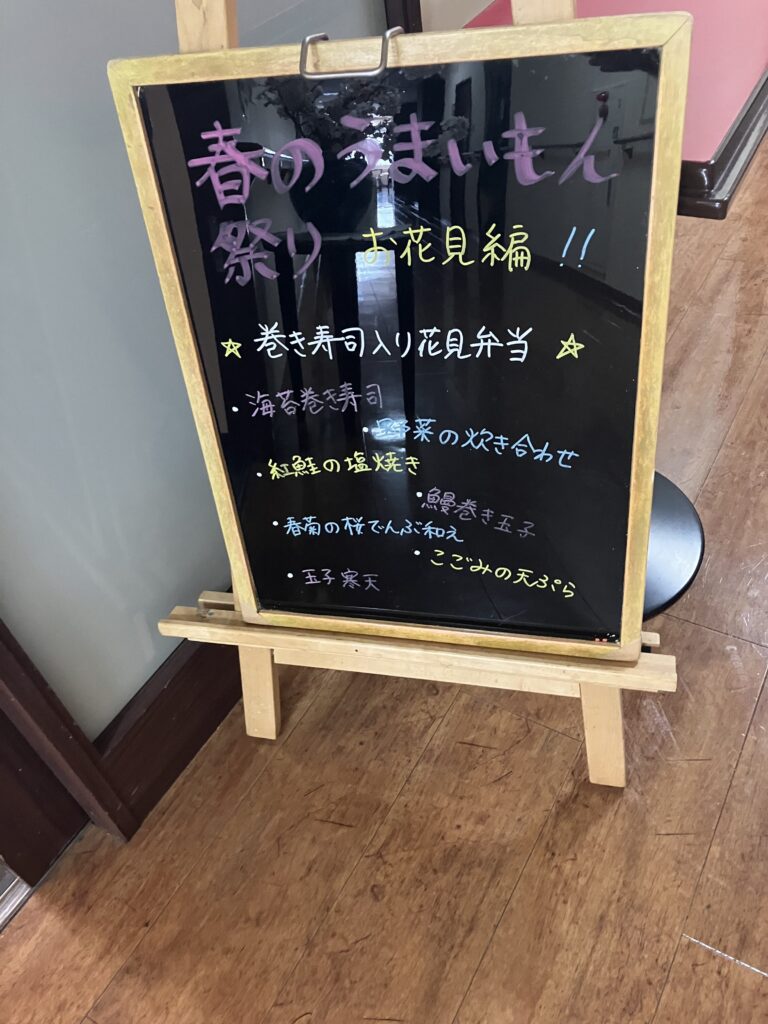 春のうまいもん
祭り お花見編 !!
☆ 巻き寿司入り花見弁当 ☆
・海苔巻き寿司
・野菜の炊き合わせ
・紅鮭の塩焼き
・鰻巻き玉子
・春菊の桜でんぶ和え
・こごみの天ぷら
・玉子寒天